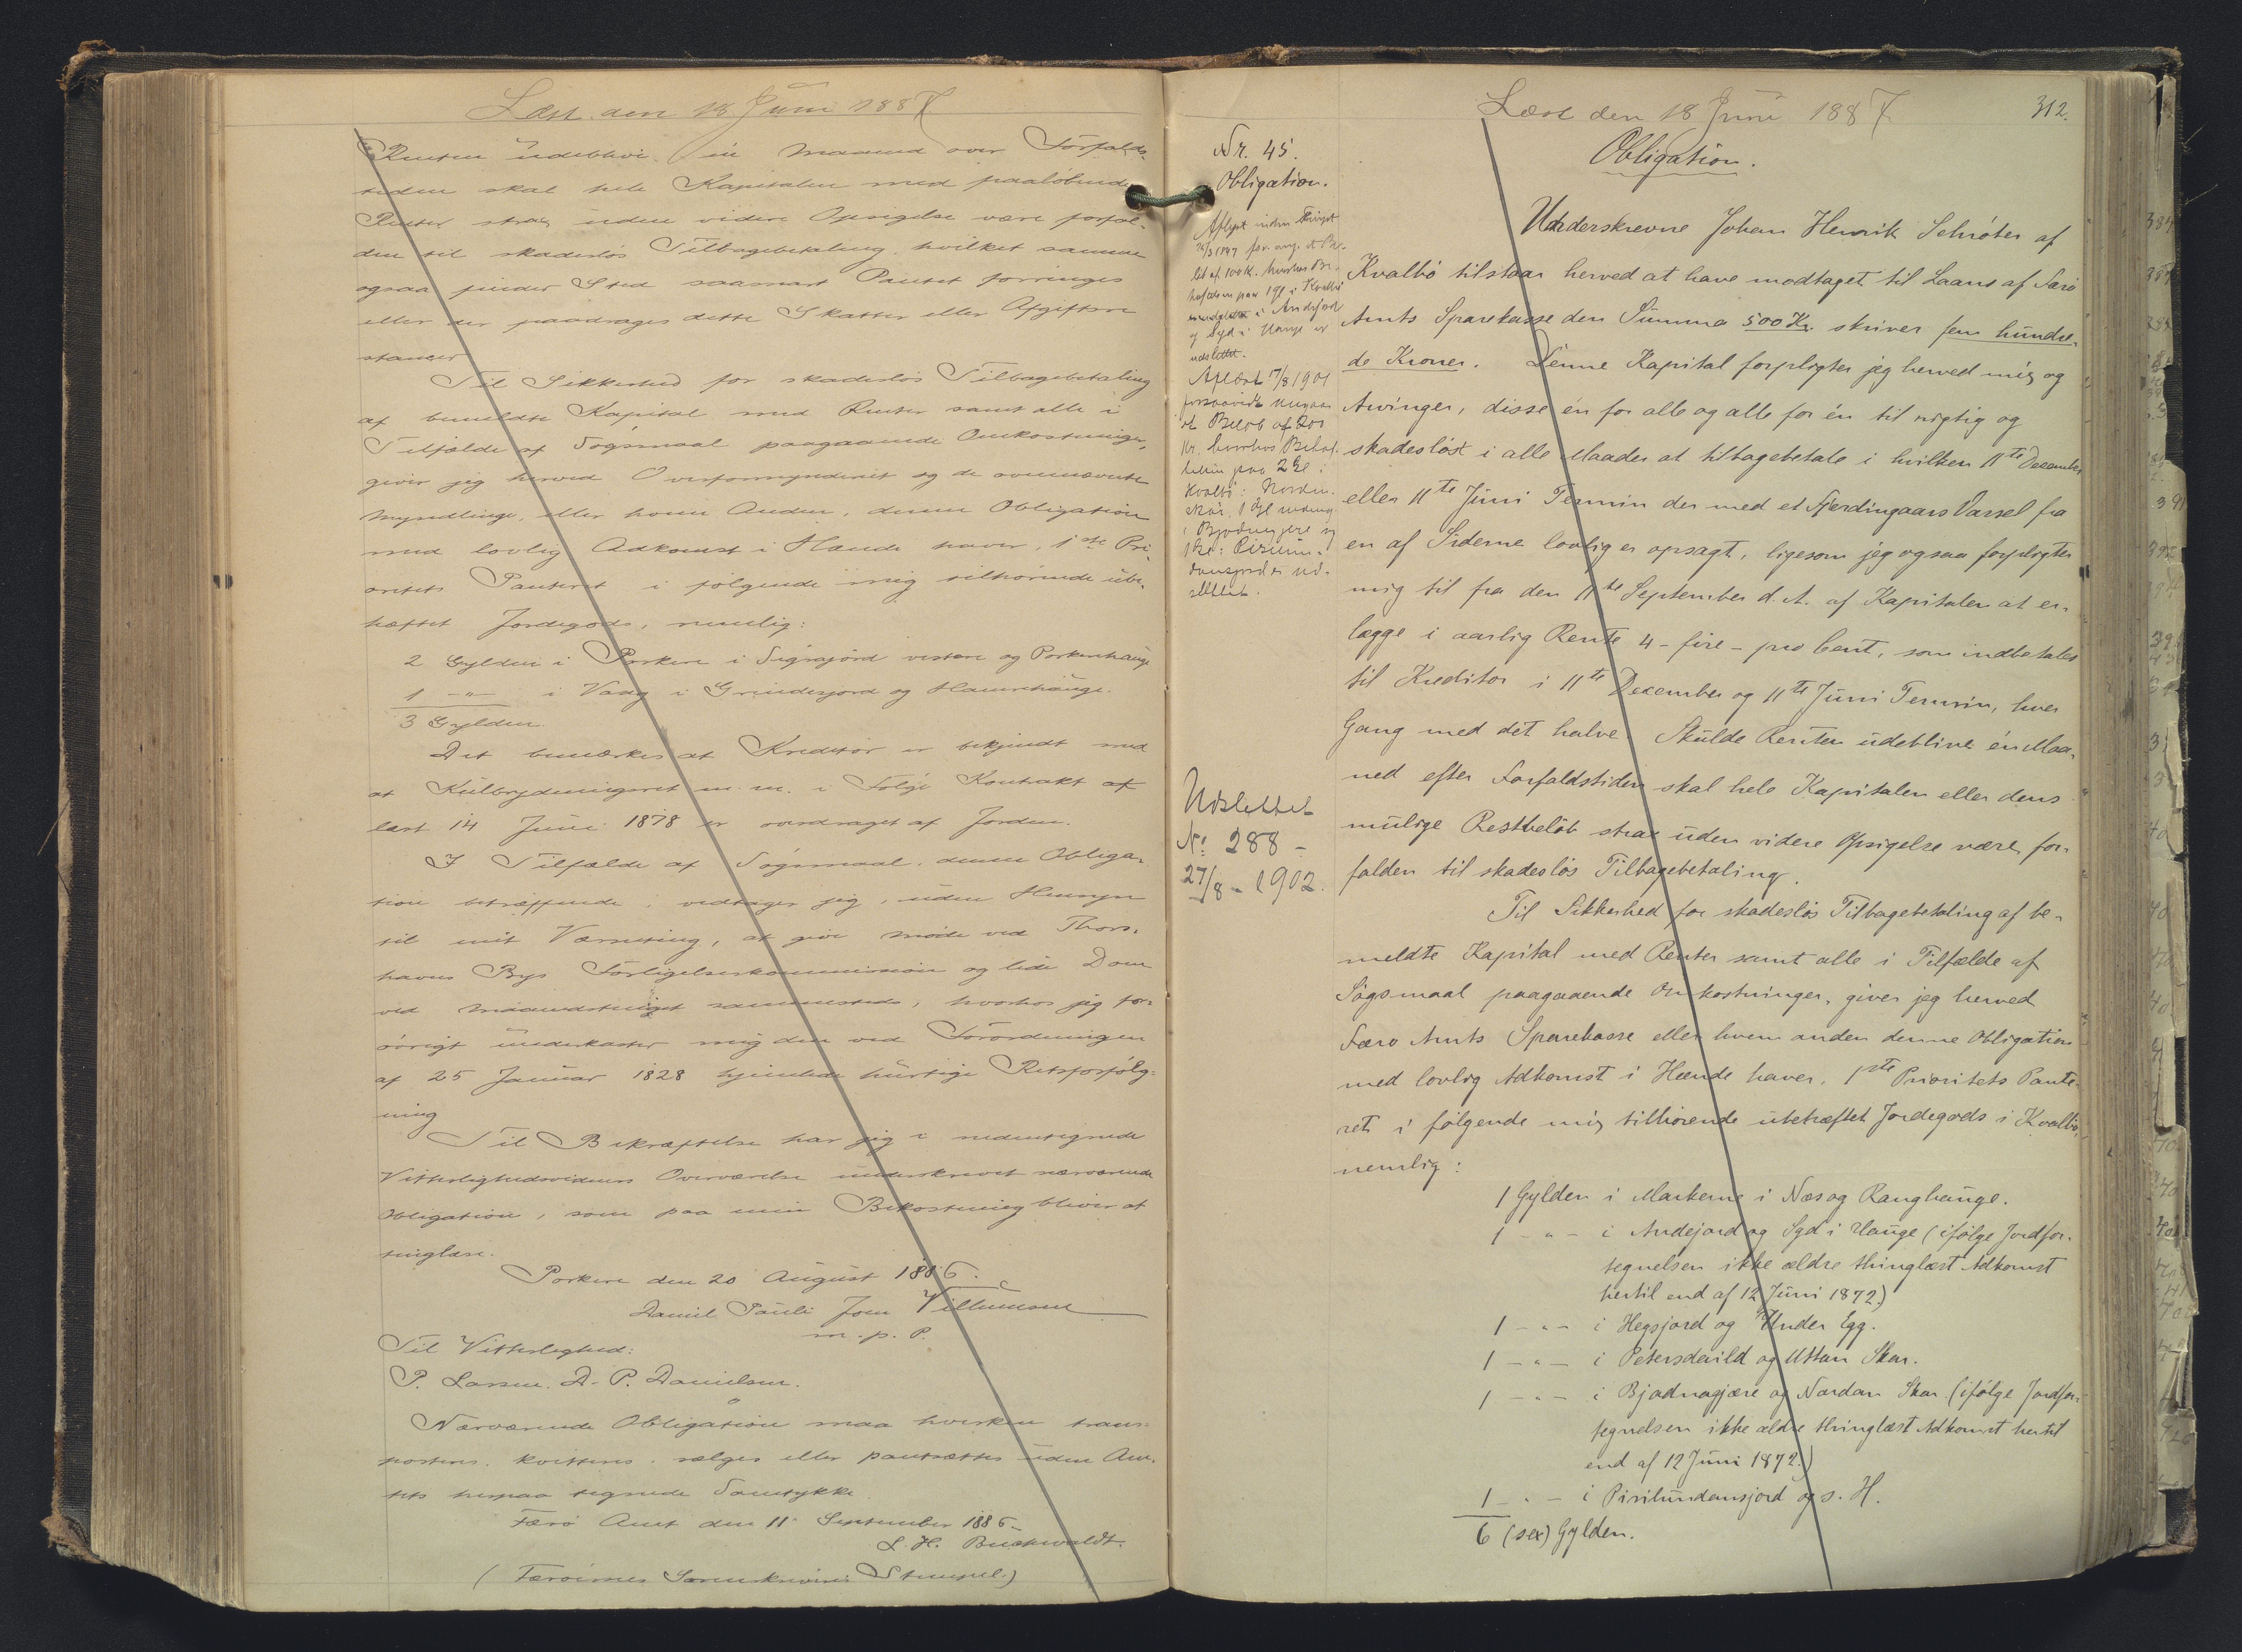 Læst den 18 Juni 1887
Renten udeblive én Maaned over Forfalds-
tiden skal hele Kapitalen med paaløbende
Renter strax uden videre Opsigelse være forfal-
den til skadesløs Tilbagebetaling, hvilket samme
ogsaa finder Sted saasnart Pantet forringes
eller der paadrages dette Skatter eller Afgifters
stancer
Til Sikkerhed for skadesløs Tilbagebetaling
af bemeldte Kapital med Renter samt alle i
Tilfælde af Søgsmaal paagaaende Omkostninger,
giver jeg herved Overformynderiet og de ovennævnte
Myndlinge, eller hvem Anden, denne Obligation
med lovlig Adkomst i Hænde haver, 1ste Pri-
oritets Panteret i følgende mig tilhørende ube-
hæftet Jordegods, nemlig:
2 Gylden i Porkere i Sigrajord vestere og Porkershauge
1 -"- i Vaag i Grindesjord og Hamrehauge.
3 Gylden
Det bemærkes at Kreditor er bekjendt med
at Kulbrydningsret m. m. i Følge Kontrakt af
læst 14 Juni 1878 er overdraget af Jorden.
I Tilfælde af Søgsmaal, denne Obliga-
tion betræffende, vedtager jeg, uden Hensyn
til mit Værneting, at give Møde ved Thors-
havns Bys Forligelseskommission og lide Dom
ved Maanedstinget sammesteds, hvorhos jeg for-
øvrigt underkaster mig den ved Forordningen
af 25 Januar 1828 hjemlede hurtige Retsforfølg-
ning
Til Bekræftelse har jeg i nedentegnede
Vitterlighedsvidners Overværelse underskrevet nærværende
Obligation, som paa min Bekostning bliver at
tinglæse.
Porkere den 20 August 1886.
Daniel Pauli Joen Villumsen
m. p. P.
Til Vitterlighed:
P. Larsen. D. P. Danielsen.
Nærværende Obligation maa hverken trans-
porteres, kvitteres, sælges eller pantsættes uden Am-
tets herpaa tegnede Samtykke
Færø Amt den 11 September 1886
L. H. Buchwaldt.
(Færøernes Sorenskriveris Stempel.)
Læst den 18 Juni 1887.
312.
Nr. 45.
Obligation.
Aflyst inden Thinget
for ang. et Be-
løb af 100 K. hvorhos Be-
hæftelsen paa 1 Gl i Kvalbø
i Andejord
og Syd i Hauge er
udslettet.
Aflæst 7/8 1901
forsaavidt angaar
et Beløb af 200
Kr. hvorhos Behæf-
telsen paa 2 Gl i
Kvalbø: Nordan
Skar, 1 Gl
i Bjodnagjære og
1 Gl i Pirilun-
dansjord er ud-
slettet.
Udslettet
No 288 -
27/8 - 1902.
Obligation.
Underskrevne Johan Henrik Schrøter af
Kvalbø tilstaar herved at have modtaget til Laans af Færø
Amts Sparekasse den Summa 500 Kr. skriver fem hundre-
de Kroner. Denne Kapital forpligter jeg herved mig og
Arvinger, disse én for alle og alle for én til rigtig og
skadesløst i alle Maader at tilbagebetale i hvilken 11te December
eller 11te Juni Termin der med et Fjerdingaars Varsel fra
en af Siderne lovlig er opsagt, ligesom jeg ogsaa forpligter
mig til fra den 11te September d. A. af Kapitalen at er-
lægge i aarlig Rente 4 - fire - pro Cent, som indbetales
til Kreditor i 11te December og 11te Juni Termin, hver
Gang med det halve. Skulde Renten udeblive én Maa-
ned efter Forfaldstiden skal hele Kapitalen eller dens
mulige Restbeløb strax uden videre Opsigelse være for-
falden til skadesløs Tilbagebetaling.
Til Sikkerhed for skadesløs Tilbagebetaling af be-
meldte Kapital med Renter samt alle i Tilfælde af
Søgsmaal paagaaende Omkostninger, giver jeg herved
Færø Amts Sparekasse eller hvem anden denne Obligation
med lovlig Adkomst i Hænde haver, 1ste Prioritets Pante-
ret i følgende mig tilhørende ubehæftet Jordegods i Kvalbø,
nemlig:
1 Gylden i Markerne i Næs og Ranghauge.
1 -"- i Andejord og Syd i Hauge (ifølge Jordfor-
tegnelsen ikke ældre thinglæst Adkomst
hertil end af 12 Juni 1872)
1 -"- i Hegsjord og Under Egg.
1 -"- i Petersdeild og Uttan Skar.
1 -"- i Bjadnagjære og Nordan Skar (ifølge Jordfor-
tegnelsen ikke ældre thinglæst Adkomst hertil
end af 12 Juni 1872.)
1 -"- i Pirilundansjord og s. H.
6 (sex) Gylden.